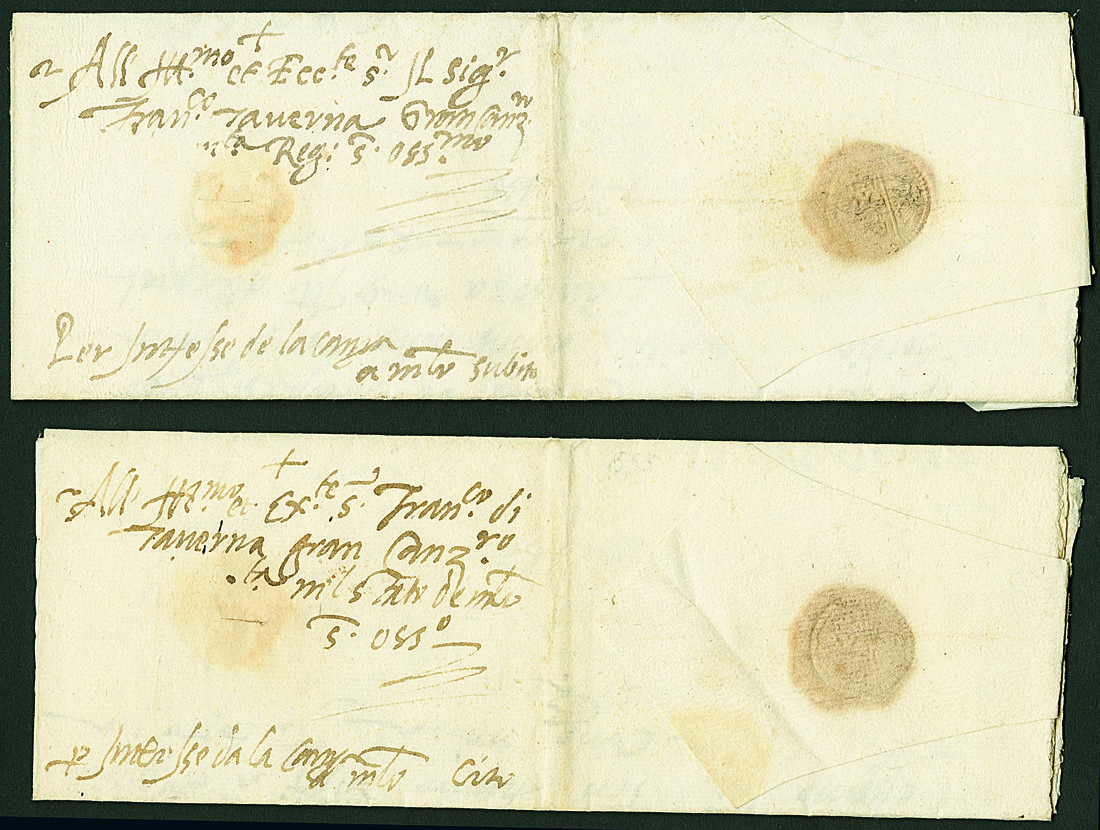 All Ill.mo et Ecc.te s.r Il Sig.r
Fran.co Taverna Gran Canz.ro
Reg. s. oss.mo
Per interesse de la
a mlo subito
All Ill.mo et Ex.te s. Fran.co di
Taverna gran Canz.ro
nel stato de mlo
s. oss.o
p interesse da la
a mlo Cito